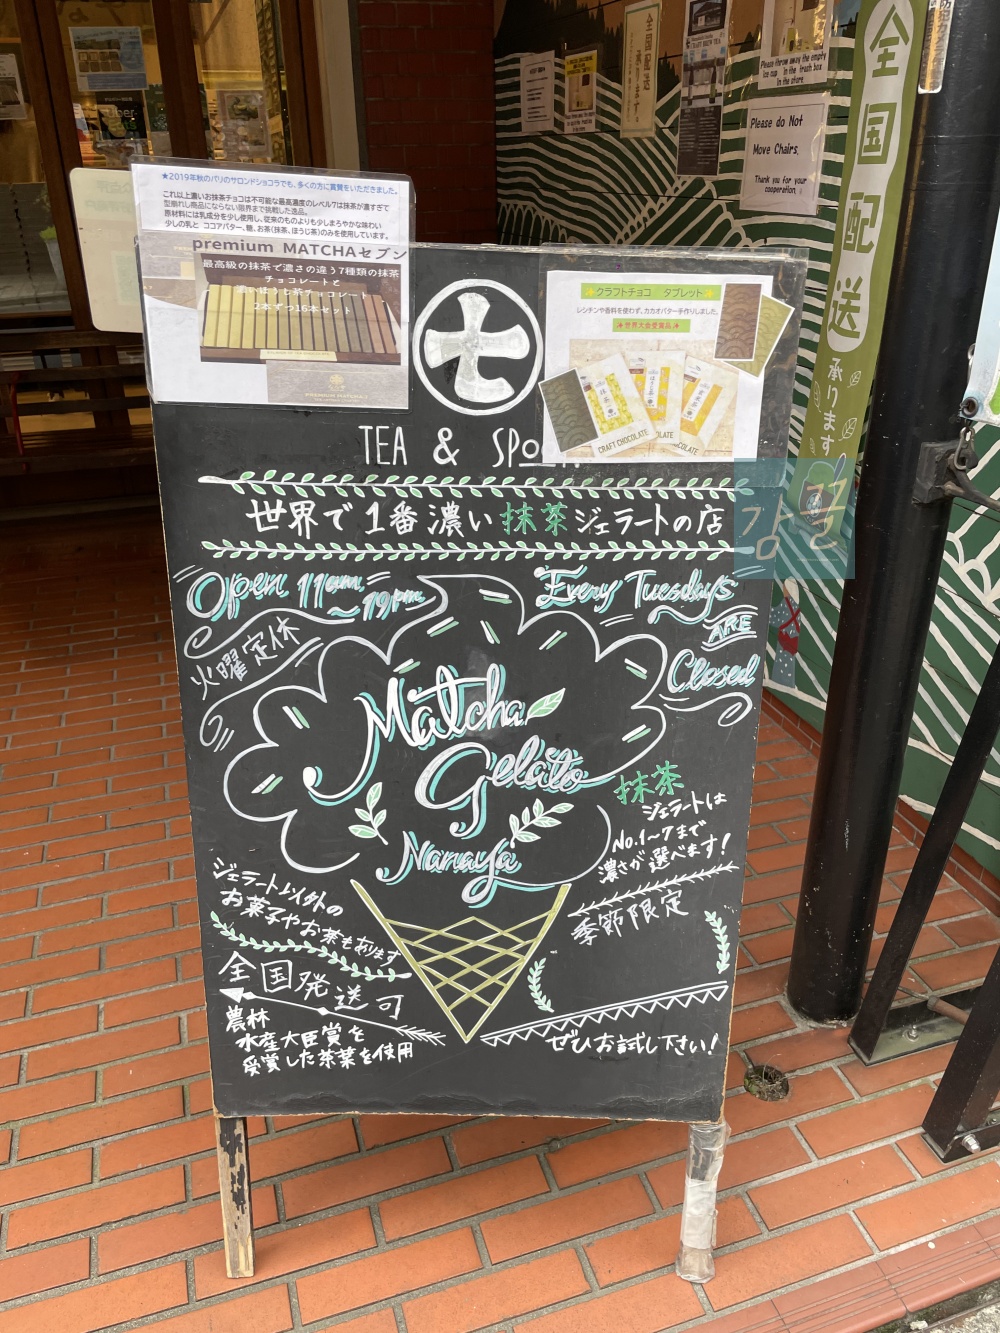 全国配送
承ります
Please throw away the empty
ice cup in the trash box
in the store.
Please do Not
Move Chairs.
Thank you for your
cooperation.
★2019年秋のパリのサロンドショコラでも、多くの方に賞賛をいただきました。
これ以上濃いお抹茶チョコは不可能な最高濃度のレベル7は抹茶が濃すぎて
型崩れし商品にならない限界まで挑戦した逸品。
原材料には乳成分を少し使用し、従来のものよりも少しまろやかな味わい
少しの乳と ココアバター、糖、お茶(抹茶、ほうじ茶)のみを使用しています。
premium MATCHAセブン
最高級の抹茶で濃さの違う7種類の抹茶
チョコレートと
濃いほうじ茶チョコレート
2本ずつ16本セット
クラフトチョコ タブレット
レシチンや香料を使わず、カカオバター手作りしました。
世界大会受賞品
抹茶
ほうじ茶
玄米茶
CRAFT CHOCOLATE
七
TEA &
世界で1番濃い抹茶ジェラートの店
강굴
Open 11am
~19pm
火曜定休
Every Tuesdays
ARE
Closed
Matcha
Gelato
Nanaya
抹茶
ジェラートは
No.1~7まで
濃さが選べます!
季節限定
ぜひお試し下さい!
ジェラート以外の
お菓子やお茶もあります
全国発送可
農林
水産大臣賞を
受賞した茶葉を使用